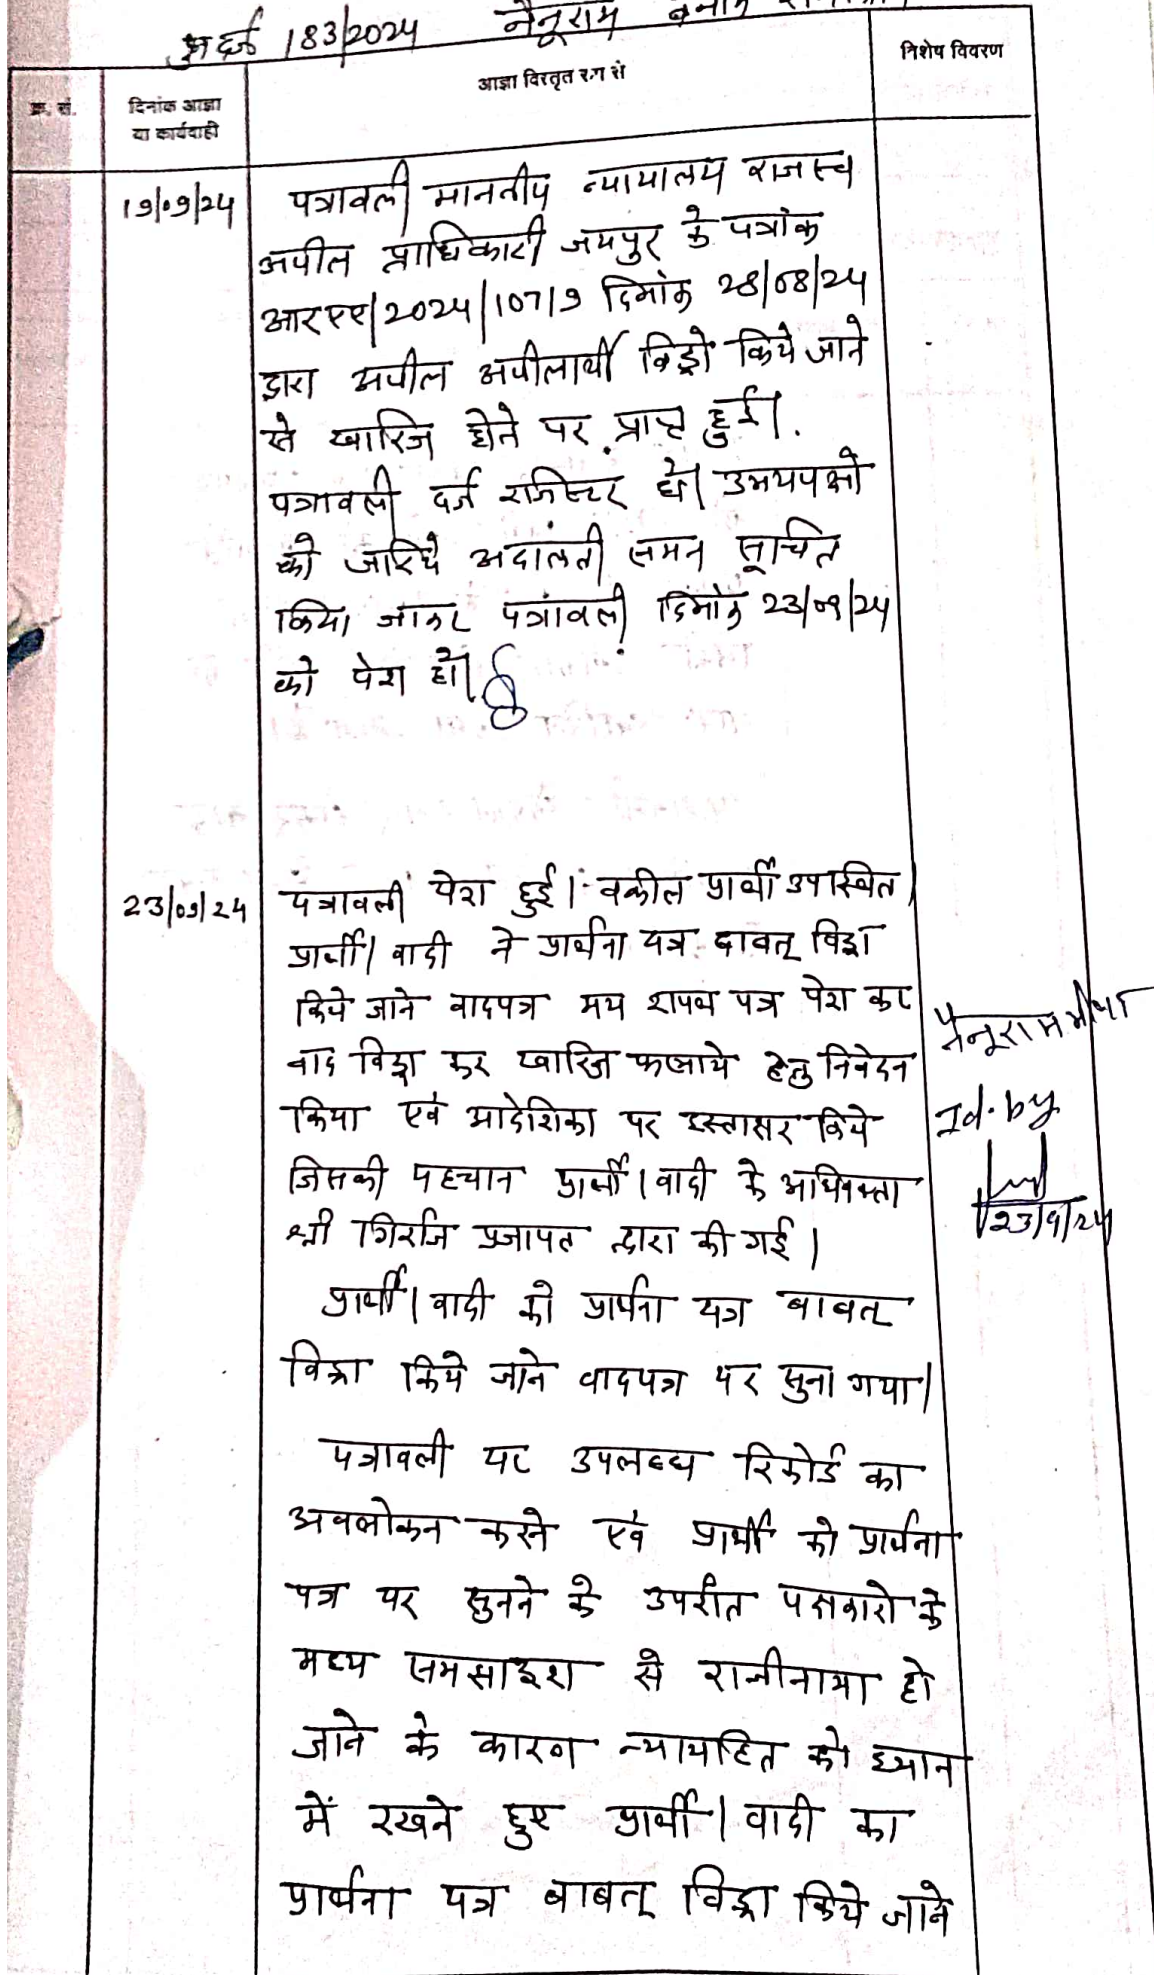 183/2024 नैनूराम बनाम
क्र. सं.
दिनांक आज्ञा
या कार्यवाही
आज्ञा विस्तृत रूप से
विशेष विवरण
19/09/24
पत्रावली माननीय न्यायालय राजस्व
अपील प्राधिकारी जयपुर के पत्रांक
आरएए/2024/10719 दिनांक 28/08/24
द्वारा अपील अपीलार्थी विड्रो किये जाने
से खारिज होने पर प्राप्त हुई।
पत्रावली दर्ज रजिस्टर हो। उभयपक्षो
को जरिये अदालती समन सूचित
किया जाकर पत्रावली दिनांक 23/09/24
को पेश हो।
23/09/24
पत्रावली पेश हुई। वकील प्रार्थी उपस्थित।
प्रार्थी/वादी ने प्रार्थना पत्र बाबत् विड्रा
किये जाने वादपत्र मय शपथ पत्र पेश कर
वाद विड्रा कर खारिज फरमाये हेतु निवेदन
किया एवं आदेशिका पर हस्ताक्षर किये
जिसकी पहचान प्रार्थी/वादी के अधिवक्ता
श्री गिर्राज प्रजापत द्वारा की गई।
नैनूराम मीणा
Id. by
23/9/24
प्रार्थी/वादी को प्रार्थना पत्र बाबत्
विड्रा किये जाने वादपत्र पर सुना गया।
पत्रावली पर उपलब्ध रिकोर्ड का
अवलोकन करने एवं प्रार्थी को प्रार्थना
पत्र पर सुनने के उपरांत पक्षकारो के
मध्य समसाइश से राजीनामा हो
जाने के कारण न्यायहित को ध्यान
में रखने हुए प्रार्थी/वादी का
प्रार्थना पत्र बाबत् विड्रा किये जाने